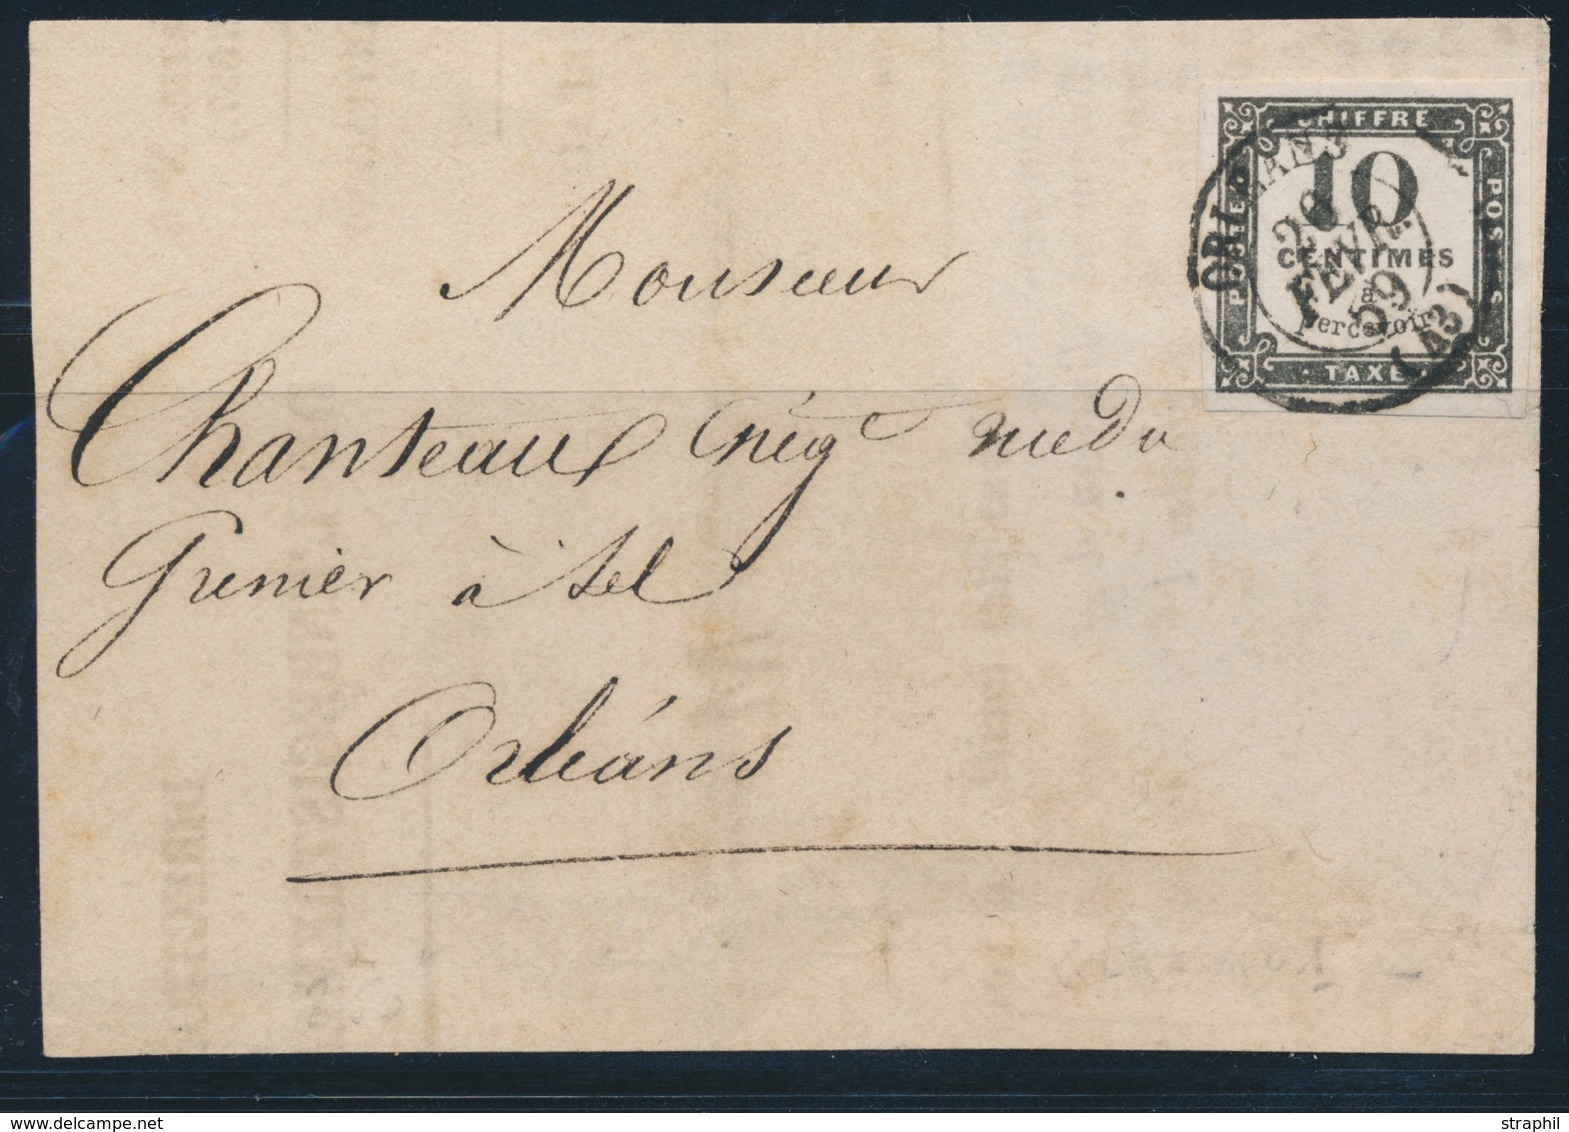 CHIFFRE
10
CENTIMES
à
percevoir
TAXE
POSTES
ORLÉANS
20
FEVR.
59
(43)
Monsieur
Chanteau Nég^t rue du
Grenier à Sel
Orléans
www.delcampe.net
straphil